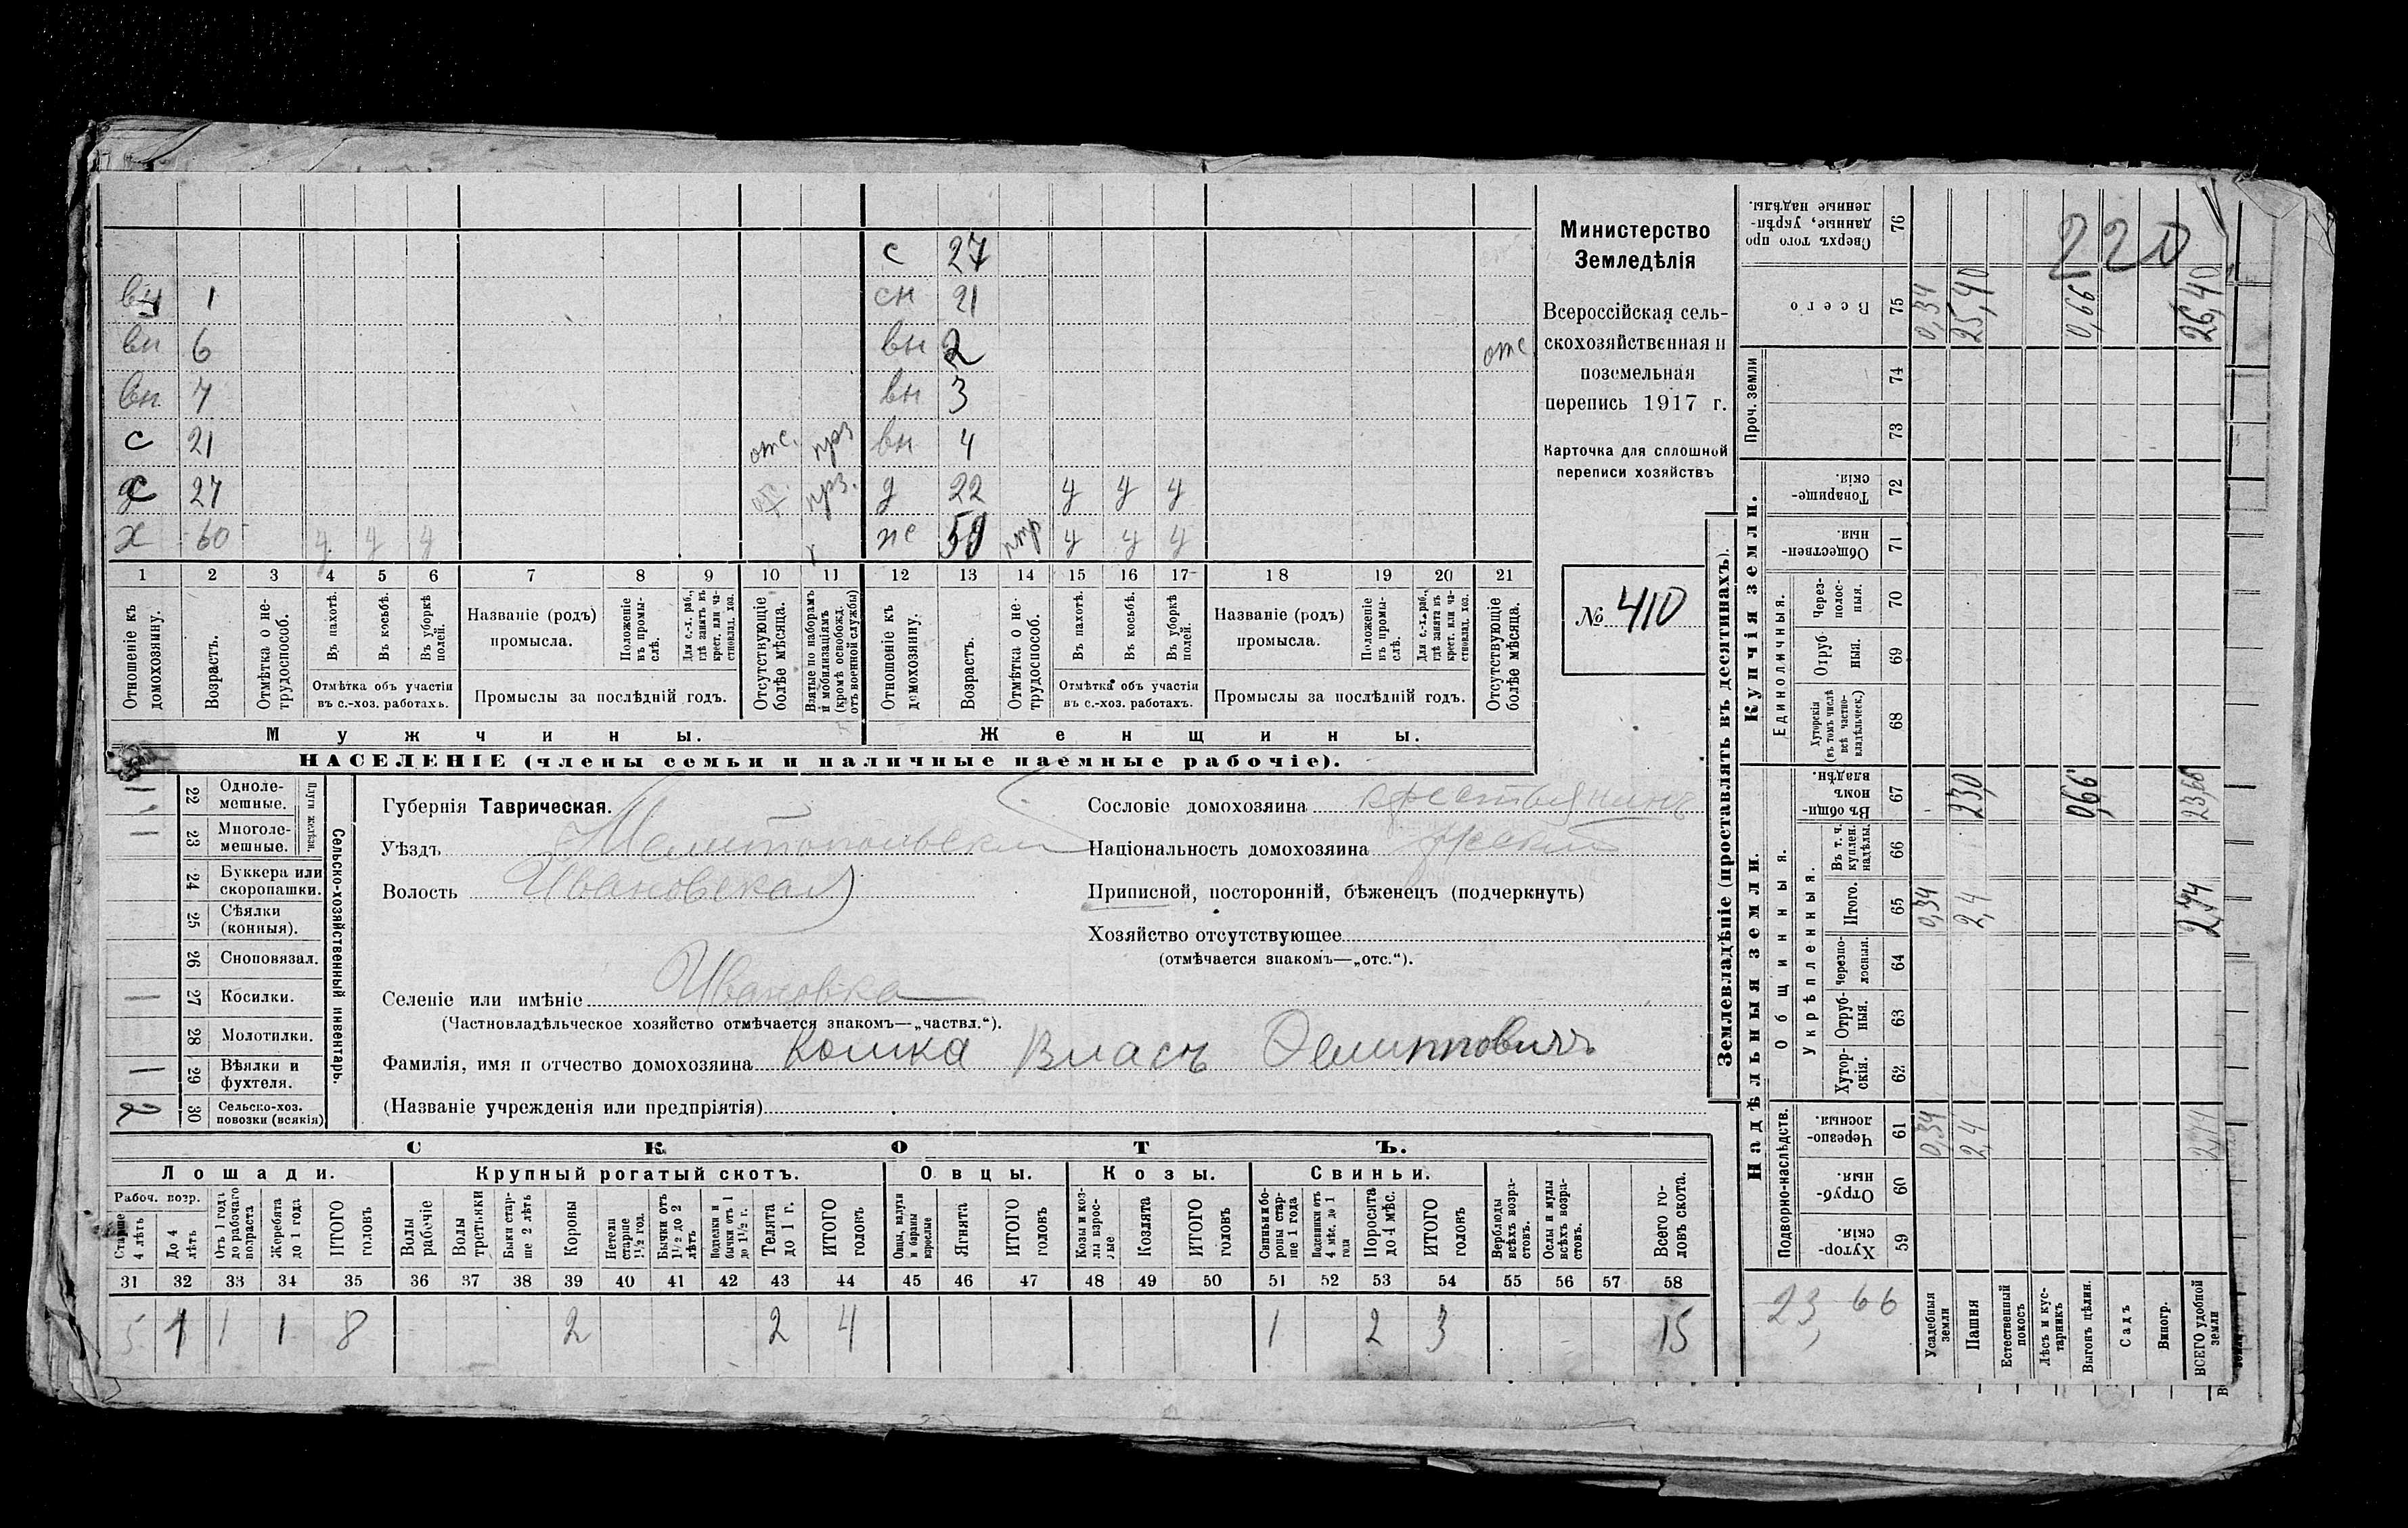 с 27
вн 1 сн 21
вн 6 вн 2 отс
вн. 7 вн 3
с 21 отс. прз вн 4
с 27 прз. д 22 у у у
х 60 у у у же у у у
1 2 3 4 5 6 7 8 9 10 11 12 13 14 15 16 17 18 19 20 21
Отношеніе къ домохозяину.
Возрастъ.
Отмѣтка о не-трудоспособ.
Въ пахотѣ.
Въ косьбѣ.
Въ уборкѣ полей.
Отмѣтка объ участіи
въ с.-хоз. работахъ.
Названіе (родъ)
промысла.
Положеніе въ промы-слѣ.
Для с.-х. раб., гдѣ занятъ въ крест. или ча-стновлад. хоз.
Промыслы за послѣдній годъ.
Отсутствующіе болѣе мѣсяца.
Взятые по наборамъ и мобилизаціямъ (кромѣ освобожд. отъ военной службы)
Отношеніе къ домохозяину.
Возрастъ.
Отмѣтка о не-трудоспособ.
Въ пахотѣ.
Въ косьбѣ.
Въ уборкѣ полей.
Отмѣтка объ участіи
въ с.-хоз. работахъ.
Названіе (родъ)
промысла.
Положеніе въ промы-слѣ.
Для с.-х. раб., гдѣ занята въ крест. или ча-стновлад. хоз.
Промыслы за послѣдній годъ.
Отсутствующіе болѣе мѣсяца.
Мужчины. Женщины.
НАСЕЛЕНІЕ (члены семьи и наличные наемные рабочіе).
Министерство
Земледѣлія
Всероссійская сель-
скохозяйственная и
поземельная
перепись 1917 г.
Карточка для сплошной
переписи хозяйствъ
№ 410
Сельско-хозяйственный инвентарь.
Плуги желѣзн.
22 Одноле-мешные.
23 Многоле-мешные.
24 Буккера или скоропашки.
25 Сѣялки (конныя).
26 Сноповязал.
27 Косилки.
28 Молотилки.
29 Вѣялки и фухтеля.
2 30 Сельско-хоз. повозки (всякія)
Губернія Таврическая.
Уѣздъ Мелитопольскій
Волость Ивановская
Селеніе или имѣніе Ивановка
(Частновладѣльческое хозяйство отмѣчается знакомъ—„частвл.“).
Фамилія, имя и отчество домохозяина Кошка Власъ
(Названіе учрежденія или предпріятія)
Сословіе домохозяина крестьянинъ
Національность домохозяина русский
Приписной, посторонній, бѣженецъ (подчеркнуть)
Хозяйство отсутствующее
(отмѣчается знакомъ—„отс.“).
СКОТЪ.
Лошади. Крупный рогатый скотъ. Овцы. Козы. Свиньи.
Рабоч. возр.
Старше 4 лѣтъ
До 4 лѣтъ
Отъ 1 года до рабочаго возраста
Жеребята до 1 года
ИТОГО головъ
Волы рабочіе
Волы третьяки
Быки стар-ше 2 лѣтъ
Коровы
Нетели старше 1½ год.
Бычки отъ 1½ до 2 лѣтъ
Подтелки и бычки отъ 1 до 1½ г.
Телята до 1 г.
ИТОГО головъ
Овцы, валухи и бараны взрослые
Ягнята
ИТОГО головъ
Козы и коз-лы взрос-лые
Козлята
ИТОГО головъ
Свиньи и бо-ровы стар-ше 1 года
Подсвинки отъ 4 мѣс. до 1 года
Поросята до 4 мѣс.
ИТОГО головъ
Верблюды всѣхъ возра-стовъ.
Ослы и мулы всѣхъ возра-стовъ.
Всего го-ловъ скота.
31 32 33 34 35 36 37 38 39 40 41 42 43 44 45 46 47 48 49 50 51 52 53 54 55 56 57 58
5 1 1 1 8 2 2 4 1 2 3 15
Землевладѣніе (проставлять въ десятинахъ).
Надѣльныя земли. Купчія земли. Проч. земли
Подворно-наслѣдств.
Общинныя.
Укрѣпленныя.
Единоличныя.
Сверхъ того про-данные, укрѣп-ленные надѣлы. 76
Всего 75 0,34 25,40 0,66 26,40
74
73
Товарище-скія. 72
Обществен-ныя. 71
Черезполос-ныя. 70
Отруб-ныя. 69
Хуторскія (въ томъ числѣ всѣ частно-владѣльческ.) 68
Въ общи-номъ владѣн. 67 23,0 0,66 23,66
Въ т. ч. куплен. надѣлы. 66
Итого. 65 0,34 2,4 2,74
Черезпо-лосныя. 64
Отруб-ныя. 63
Хутор-скія. 62
Черезпо-лосныя. 61 0,34 2,4 2,74
Отруб-ныя. 60
Хутор-скія. 59
23,66
Усадебныя земли
Пашня
Естественный покосъ
Лѣсъ и кус-тарникъ
Выгонъ цѣлин.
Садъ
Виногр.
ВСЕГО удобной земли
220